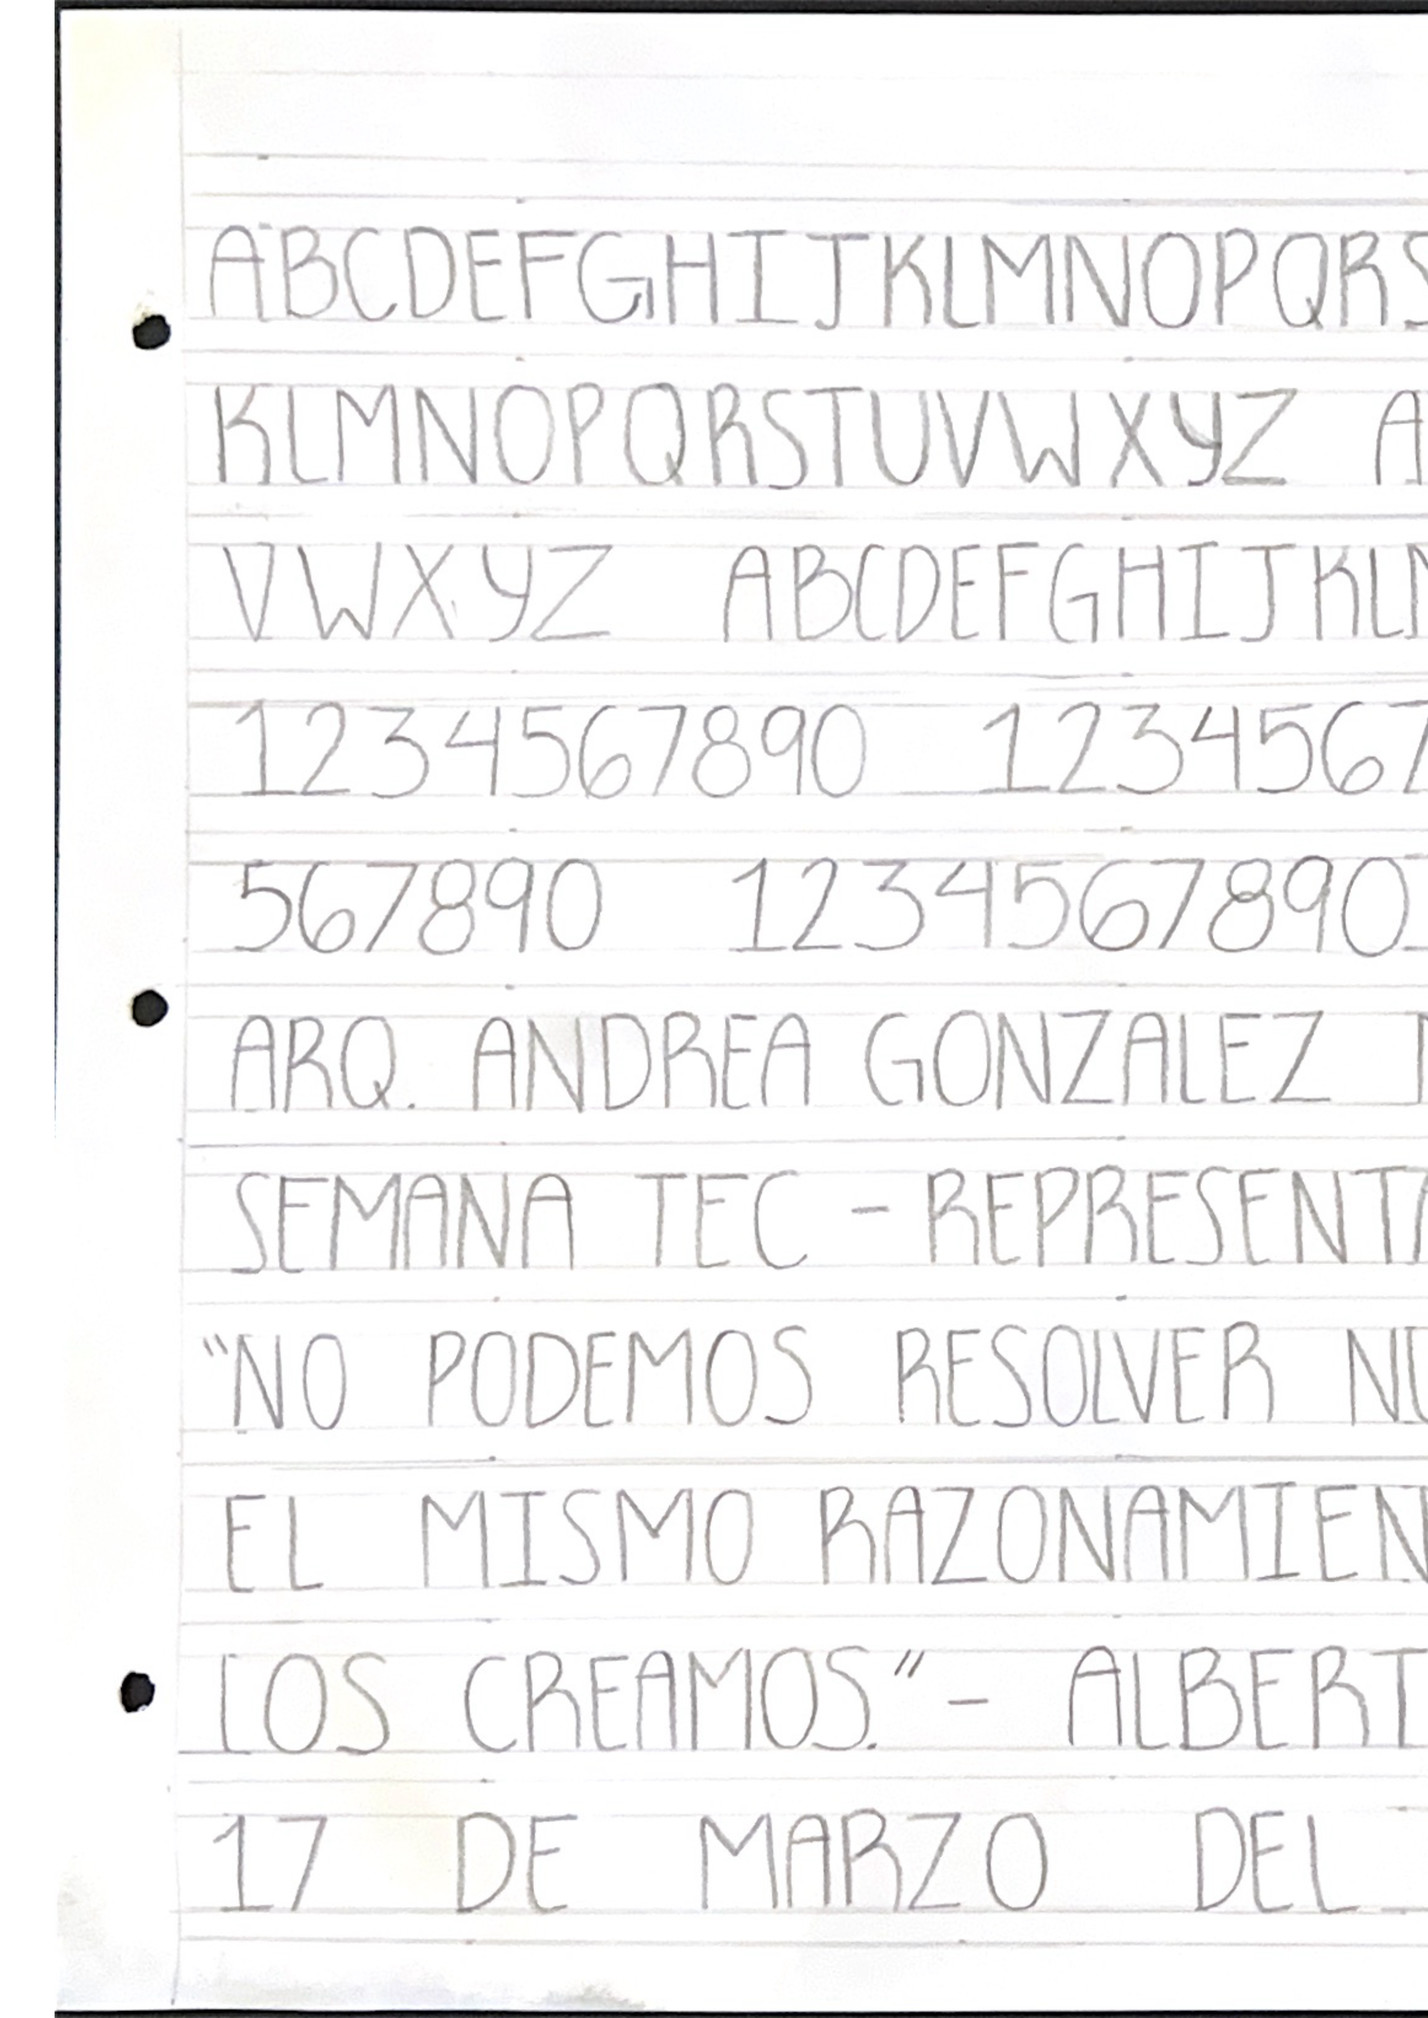 ABCDEFGHIJKLMNOPQRS
KLMNOPQRSTUVWXYZ A
VWXYZ ABCDEFGHIJKL
1234567890 1234567
567890 1234567890
ARQ. ANDREA GONZALEZ
SEMANA TEC - REPRESENTA
"NO PODEMOS RESOLVER NU
EL MISMO RAZONAMIEN
LOS CREAMOS." - ALBERT
17 DE MARZO DEL